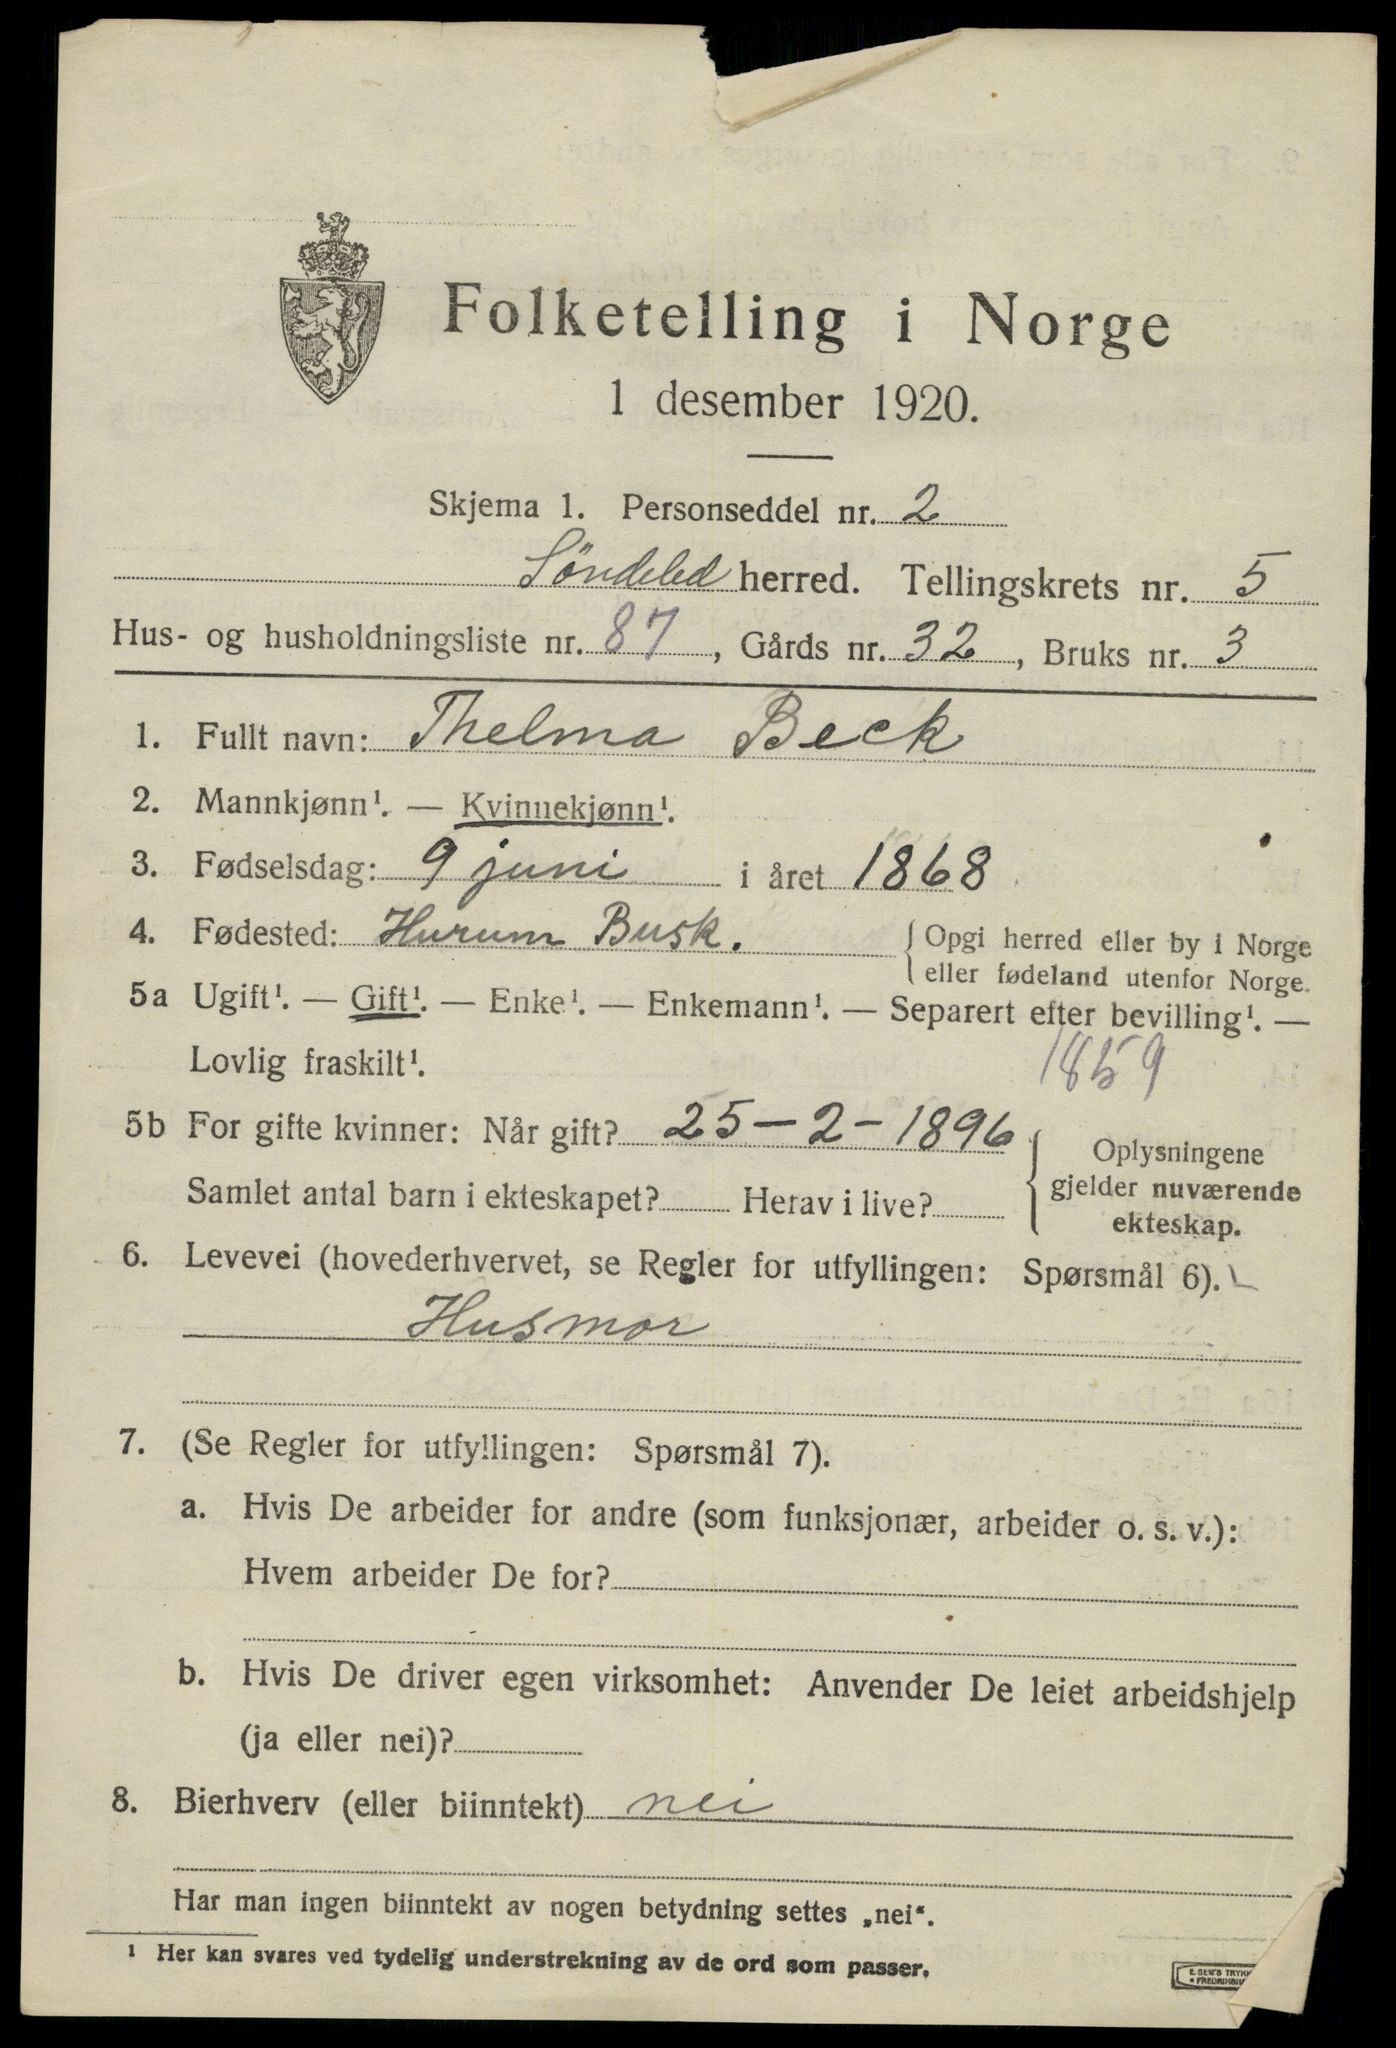 Folketelling i Norge
1 desember 1920.
Skjema 1. Personseddel nr. 2
Söndeled herred. Tellingskrets nr. 5
Hus- og husholdningsliste nr. 87, Gårds nr. 32, Bruks nr. 3
1. Fullt navn: Thelma Beck
2. Mannkjønn¹. — Kvinnekjønn¹.
3. Fødselsdag: 9 juni i året 1868
4. Fødested: Hurum Busk. { Opgi herred eller by i Norge
eller fødeland utenfor Norge.
5a Ugift¹. — Gift¹. — Enke¹. — Enkemann¹. — Separert efter bevilling¹. —
Lovlig fraskilt¹. 1859
5b For gifte kvinner: Når gift? 25-2-1896
Samlet antal barn i ekteskapet? Herav i live?
{ Oplysningene
gjelder nuværende
ekteskap.
6. Levevei (hovederhvervet, se Regler for utfyllingen: Spørsmål 6).
Husmor
7. (Se Regler for utfyllingen: Spørsmål 7).
a. Hvis De arbeider for andre (som funksjonær, arbeider o. s. v.):
Hvem arbeider De for?
b. Hvis De driver egen virksomhet: Anvender De leiet arbeidshjelp
(ja eller nei)?
8. Bierhverv (eller biinntekt) nei
Har man ingen biinntekt av nogen betydning settes „nei“.
¹ Her kan svares ved tydelig understrekning av de ord som passer.